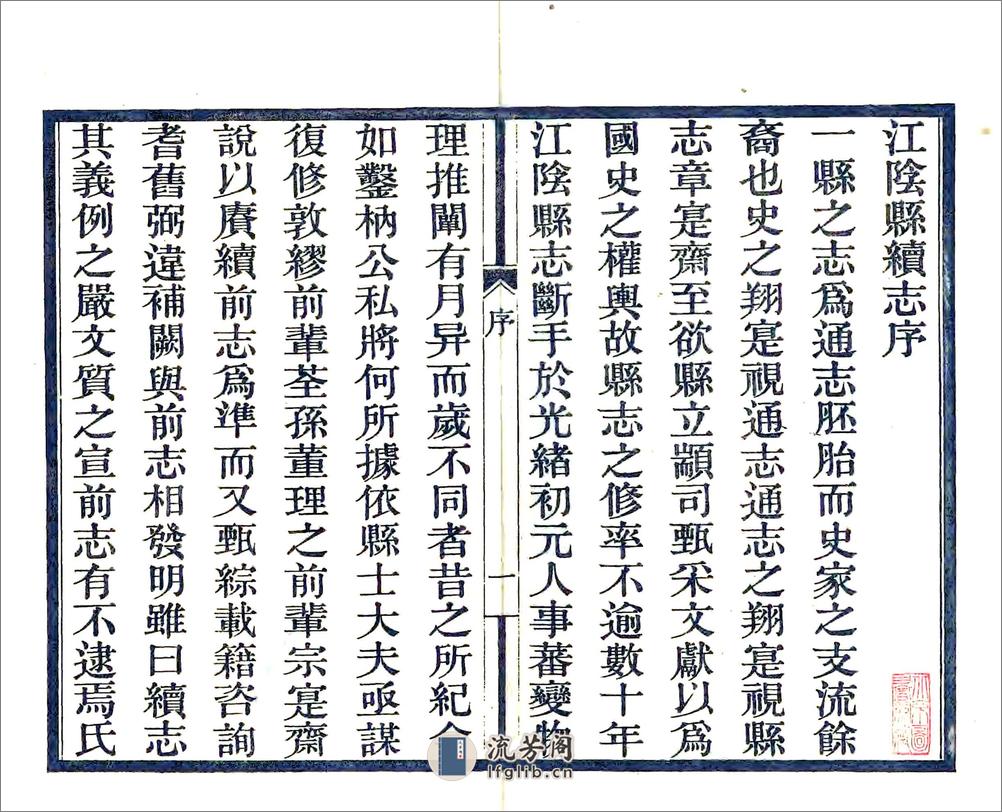 江陰縣續志序
一縣之志爲通志胚胎而史家之支流餘
裔也史之翔寔視通志通志之翔寔視縣
志章寔齋至欲縣立顓司甄采文獻以爲
國史之權輿故縣志之修率不逾數十年
江陰縣志斷手於光緒初元人事蕃變物
序
一
理推闡有月异而歲不同者昔之所紀今
如鑿枘公私將何所據依縣士大夫亟謀
復修敦繆前輩荃孫董理之前輩宗寔齋
說以賡續前志爲準而又甄綜載籍咨詢
耆舊弼違補闕與前志相發明雖曰續志
其義例之嚴文質之宣前志有不逮焉氏
流芳阁
lfglib.cn